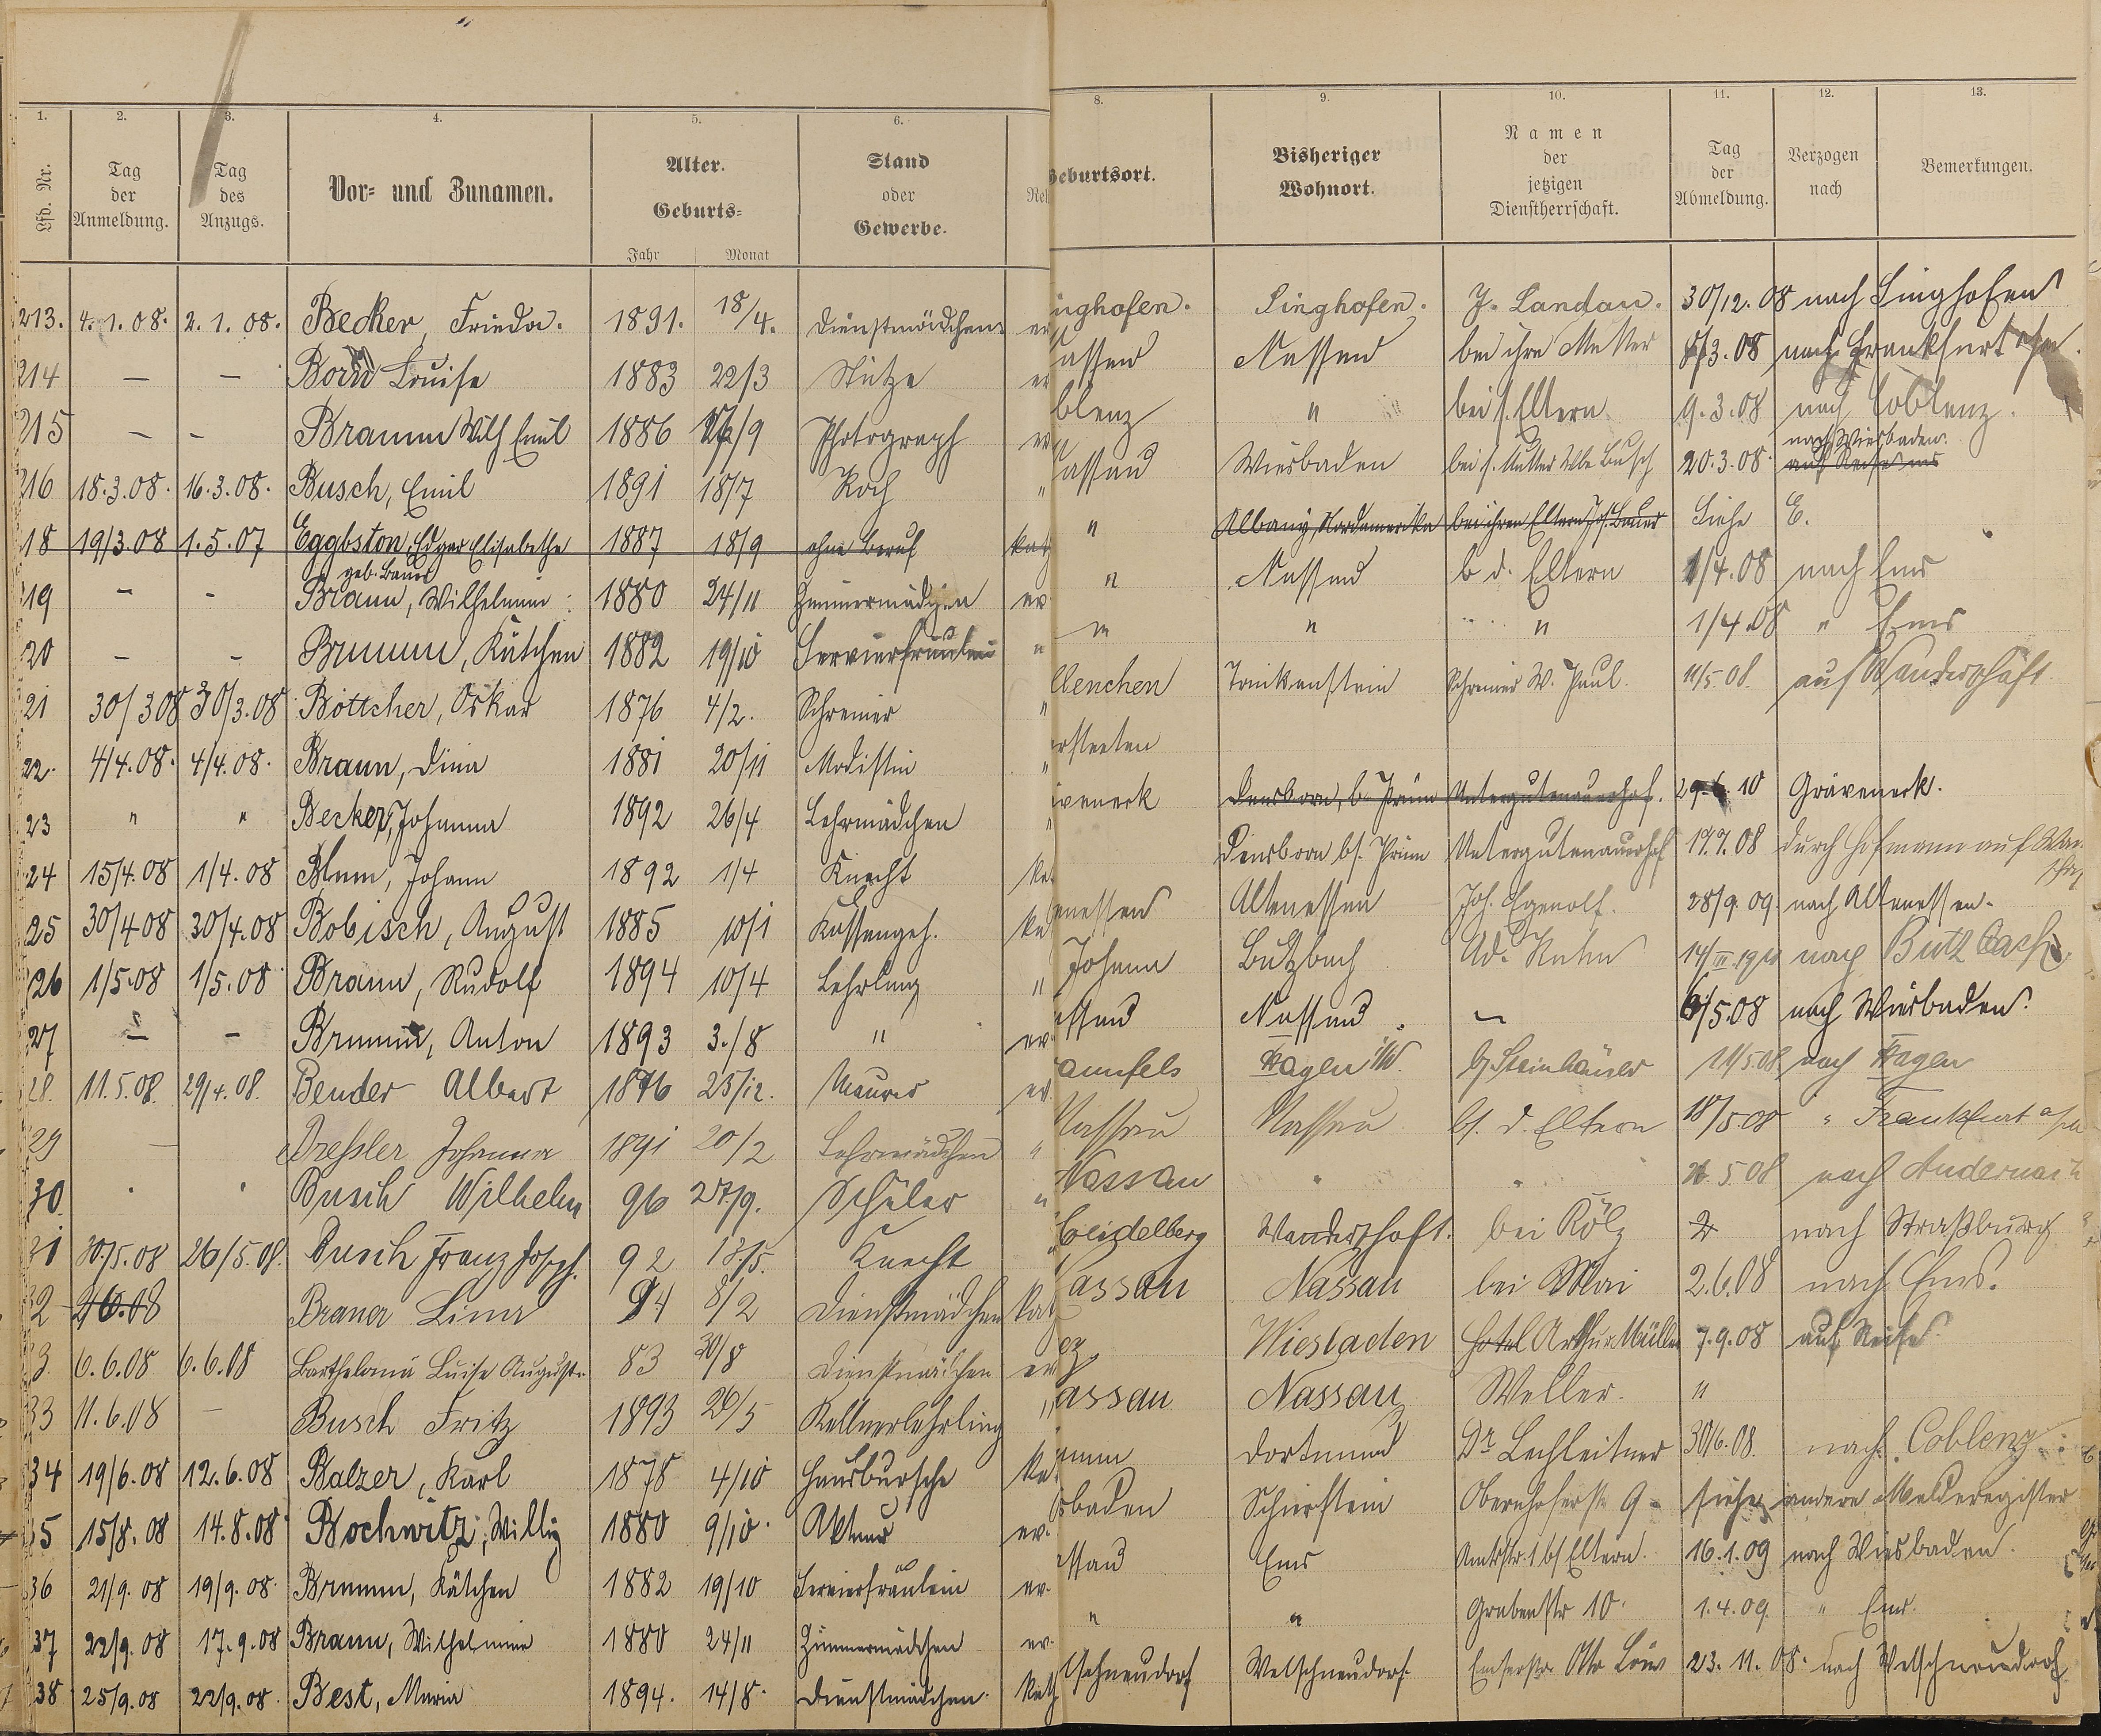 1. 2. 3. 4. 5. 6. 8. 9. 10. 11. 12. 13.
Lfd. Nr. Tag der Anmeldung. Tag des Anzugs. Vor- und Zunamen. Alter. Geburts= Jahr Monat Stand oder Gewerbe. Rel Geburtsort. Bisheriger Wohnort. Namen der jetzigen Dienstherrschaft. Tag der Abmeldung. Verzogen nach Bemerkungen.
213. 4.1.08. 2.1.08. Becker, Frieda. 1891. 18/4. Dienstmädchen ev inghofen. Singhofen. J. Landau. 30/12.08 nach Singhofen
214 — — Born Louise 1883 22/3 Stütze ev assau Nassau bei ihre Mutter 8/3.08 nach Frankfurt a/m.
215 — — Braunn Wilh Emil 1886 /9 Photograph ev blenz " bei s. Eltern 9.3.08 nach Coblenz.
216 18.3.08. 16.3.08. Busch, Emil 1891 18/7 Koch " assau Wiesbaden bei s. Mutter Wwe Busch 20.3.08. nach Wiesbaden. auf Reise
18 19/3.08 1.5.07 Eggbston, Edgar Elisabethe geb. Bauer 1887 18/9 ohne Beruf kat " Albany, Nordamerika bei ihren Eltern Jos. Bauer Siehe E.
19 - - Braun, Wilhelmine 1880 24/11 Zimmermädchen ev " Nassau b d. Eltern 1/4.08 nach Ems
20 - - Brumm, Kätchen 1882 19/10 Servierfräulein " " " " 1/4.08 " Ems
21 30/3 08 30/3.08 Böttcher, Oskar 1876 4/2. Schreiner " lenchen Schreiner W. Paul. 11/5 08. auf Wanderschaft.
22. 4/4.08. 4/4.08. Braun, Dina 1881 20/11 Modistin "
23 " " Becker, Johanna 1892 26/4 Lehrmädchen " veneck Densborn, b. Prüm Untergutenauerhof. 10 Gräveneck.
24 15/4.08 1/4.08 Blum, Johann 1892 1/4 Knecht ka Densborn b/. Prüm Untergutenauerhof 17.7.08 durch Hofmann auf Wan
25 30/4 08 30/4.08 Bobisch, August 1885 10/1 Kassengeh. ka enessen Altenessen Joh. Egenolf. 28/9.09 nach Altenessen.
26 1/5.08 1/5.08 Braun, Rudolf 1894 10/4 Lehrling " Johann Butzbach Ad. Kuhn 14/III.1910 nach Butzbach
27 — - Brumm, Anton 1893 3./8 " ev. ssau Nassau — 6/5.08 nach Wiesbaden.
28. 11.5.08. 29/4.08. Bender Albert 1876 25/12. Maurer ev. aunfels Hagen i/W. b/ Steinhäuser 11/5.08 nach Hagen
29 — Dressler Johanna 1891 20/2 Lehrmädchen " Nassau Nassau b/. d. Eltern 18/5.08 " Frankfurt a/m
30. " " Busch Wilhelm 96 27/9. Schüler " Nassau " " 5.08 nach Andernach
31 30/5.08 26/5.08. Busch Franz Joseph. 92 13/5. Knecht Heidelberg Wanderschaft. bei Kölz nach Straßburg
32 08 Braun Lina 94 8/2 Dienstmädchen kat assau Nassau bei Mai 2.6.08 nach Ems.
3. 6.6.08 6.6.08 Barthelomä Luise Auguste. 83 30/8 Dienstmädchen ev Wiesbaden Hotel Arthur Müller 7.9.08 auf Reise.
33 11.6.08 — Busch Fritz 1893 26/5 Kellnerlehrling " assau Nassau Weller. "
34 19/6.08 12.6.08 Balzer, Karl 1878 4/10 Hausbursche ka Dortmund Dr Lechleitner 30/6.08. nach Coblenz
35 15/8.08 14.8.08. Bochwitz, Willy 1880 9/10. Akteur ev. sbaden Schierstein Obernhoferstr 9 - siehe andere Melderegister
36 21/9.08 19/9.08. Brumm, Kätchen 1882 19/10 Servierfräulein ev. ssau Ems Amtsstr. 1 b/ Eltern. 16.1.09 nach Wiesbaden.
37 22/9.08 17.9.08 Braun, Wilhelmine 1880 24/11 Zimmermädchen ev. " " Grabenstr 10. 1.4.09. " Ems.
38 25/9.08 22/9.08. Best, Maria 1894. 14/8. Dienstmädchen. kath lschneudorf Welschneudorf. Emserstr. Otto Löw 23.11.08. nach Welschneudorf